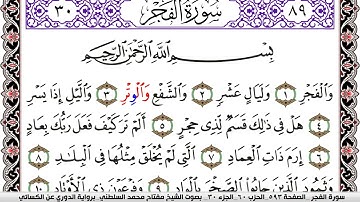 ٣٠ سُورَةُ الفَجْرِ ٨٩
بِسْمِ اللَّهِ الرَّحْمَٰنِ الرَّحِيمِ
وَالْفَجْرِ ١ وَلَيَالٍ عَشْرٍ ٢ وَالشَّفْعِ وَالْوِتْرِ ٣ وَاللَّيْلِ إِذَا يَسْرِ
٤ هَلْ فِي ذَٰلِكَ قَسَمٌ لِّذِي حِجْرٍ ٥ أَلَمْ تَرَ كَيْفَ فَعَلَ رَبُّكَ بِعَادٍ
٦ إِرَمَ ذَاتِ الْعِمَادِ ٧ الَّتِي لَمْ يُخْلَقْ مِثْلُهَا فِي الْبِلَٰدِ ٨
وَثَمُودَ الَّذِينَ جَابُوا الصَّخْرَ بِالْوَادِ ٩ وَفِرْعَوْنَ ذِي الْأَوْتَادِ ١٠
سورة الفجر _ الصفحة ٥٩٣ _ الحزب ٦٠ _ الجزء ٣٠ _ بصوت الشيخ مفتاح محمد السلطني _ برواية الدوري عن الكسائي